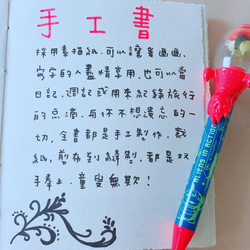 手工書
採用素描紙，可以讓喜畫畫、
寫字的人盡情享用，也可以當
日記、週記或用來紀錄旅行
的點滴，與你不想遺忘的一
切，全書都是手工製作，裁
紙，剪布到縫製，都是双
手奉上，童叟無欺！
ALIENS IN ACTION